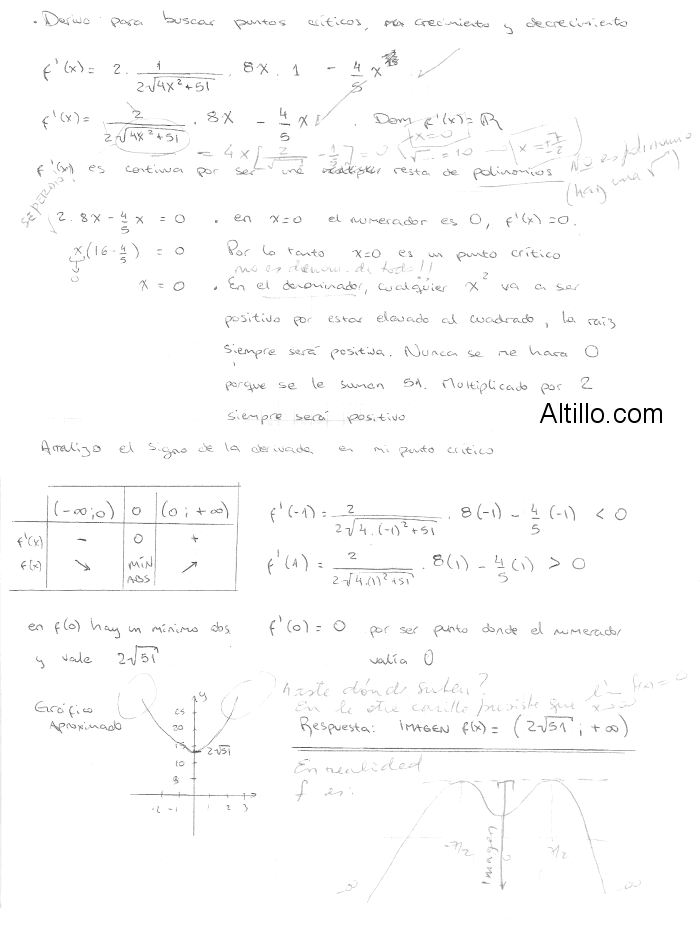 . Derivo para buscar puntos críticos, crecimiento y decrecimiento
f'(x) = 2 . 1/(2√4x²+51) . 8x . 1 - 4/5 x
f'(x) = 2/(2√4x²+51) . 8x - 4/5 x . Dom f'(x) = ℝ
= 4x [2/√ - 1/5] = 0 x=0 √ = 10 x = ±7/2
f'(x) es continua por ser una resta de polinomios No es polinomio
(hay una √ )
SEPARADO
2. 8x - 4/5 x = 0 . en x=0 el numerador es 0, f'(x)=0.
x(16 - 4/5) = 0 Por lo tanto x=0 es un punto crítico
0 no es denom. de todo!!
x = 0 . En el denominador, cualquier x² va a ser
positivo por estar elevado al cuadrado, la raíz
siempre será positiva. Nunca se me hará 0
porque se le suman 51. Multiplicado por 2
siempre será positivo
Altillo.com
Analizo el signo de la derivada en mi punto crítico
(-∞;0) 0 (0;+∞)
f'(x) - 0 +
f(x) ↘ MÍN ABS ↗
f'(-1) = 2/(2√4.(-1)²+51) . 8(-1) - 4/5 (-1) < 0
f'(1) = 2/(2√4.(1)²+51) . 8(1) - 4/5 (1) > 0
en f(0) hay un mínimo abs f'(0) = 0 por ser punto donde el numerador
y vale 2√51 valía 0
Gráfico
Aproximado
y
25
20
15
10
5
2√51
-2 -1 1 2 3
Hasta dónde suben?
En la otra carilla pusiste que lim f(x) = 0
x→∞
Respuesta: IMAGEN f(x) = (2√51 ; +∞)
En realidad
f es:
-7/2 0 7/2
Imagen
-∞ -∞